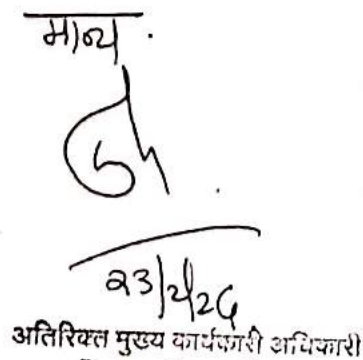 मान्य.
२३/२/२६
अतिरिक्त मुख्य कार्यकारी अधिकारी